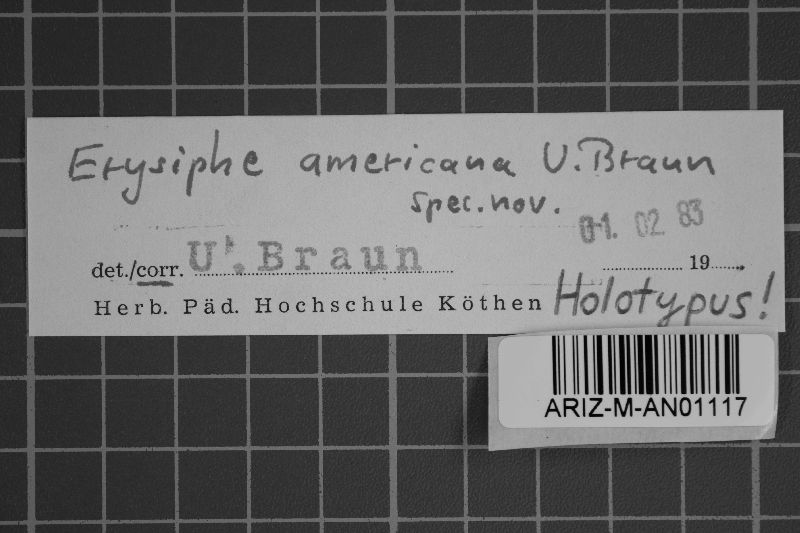 Erysiphe americana U.Braun
spec.nov.
01. 02 83
det./corr. U. Braun 19
Herb. Päd. Hochschule Köthen Holotypus!
ARIZ-M-AN01117